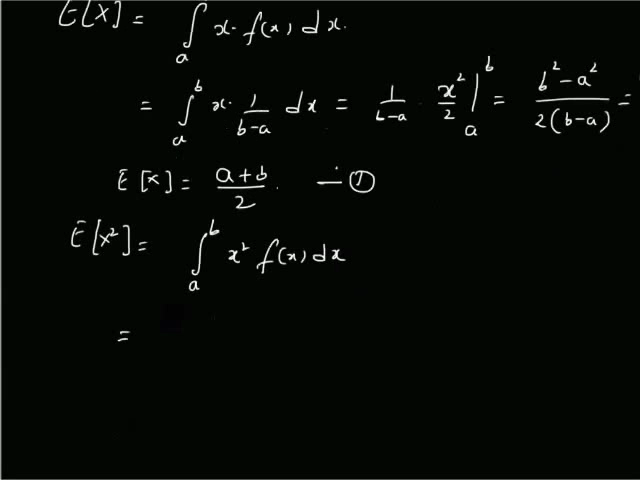 E[X] = ∫_a x. f(x) dx.
= ∫_a^b x. 1/(b-a) dx = 1/(b-a) . x²/2 |_a^b = (b²-a²)/(2(b-a)) =
E[x] = (a+b)/2. — ①
E[x²] = ∫_a^b x² f(x) dx
=